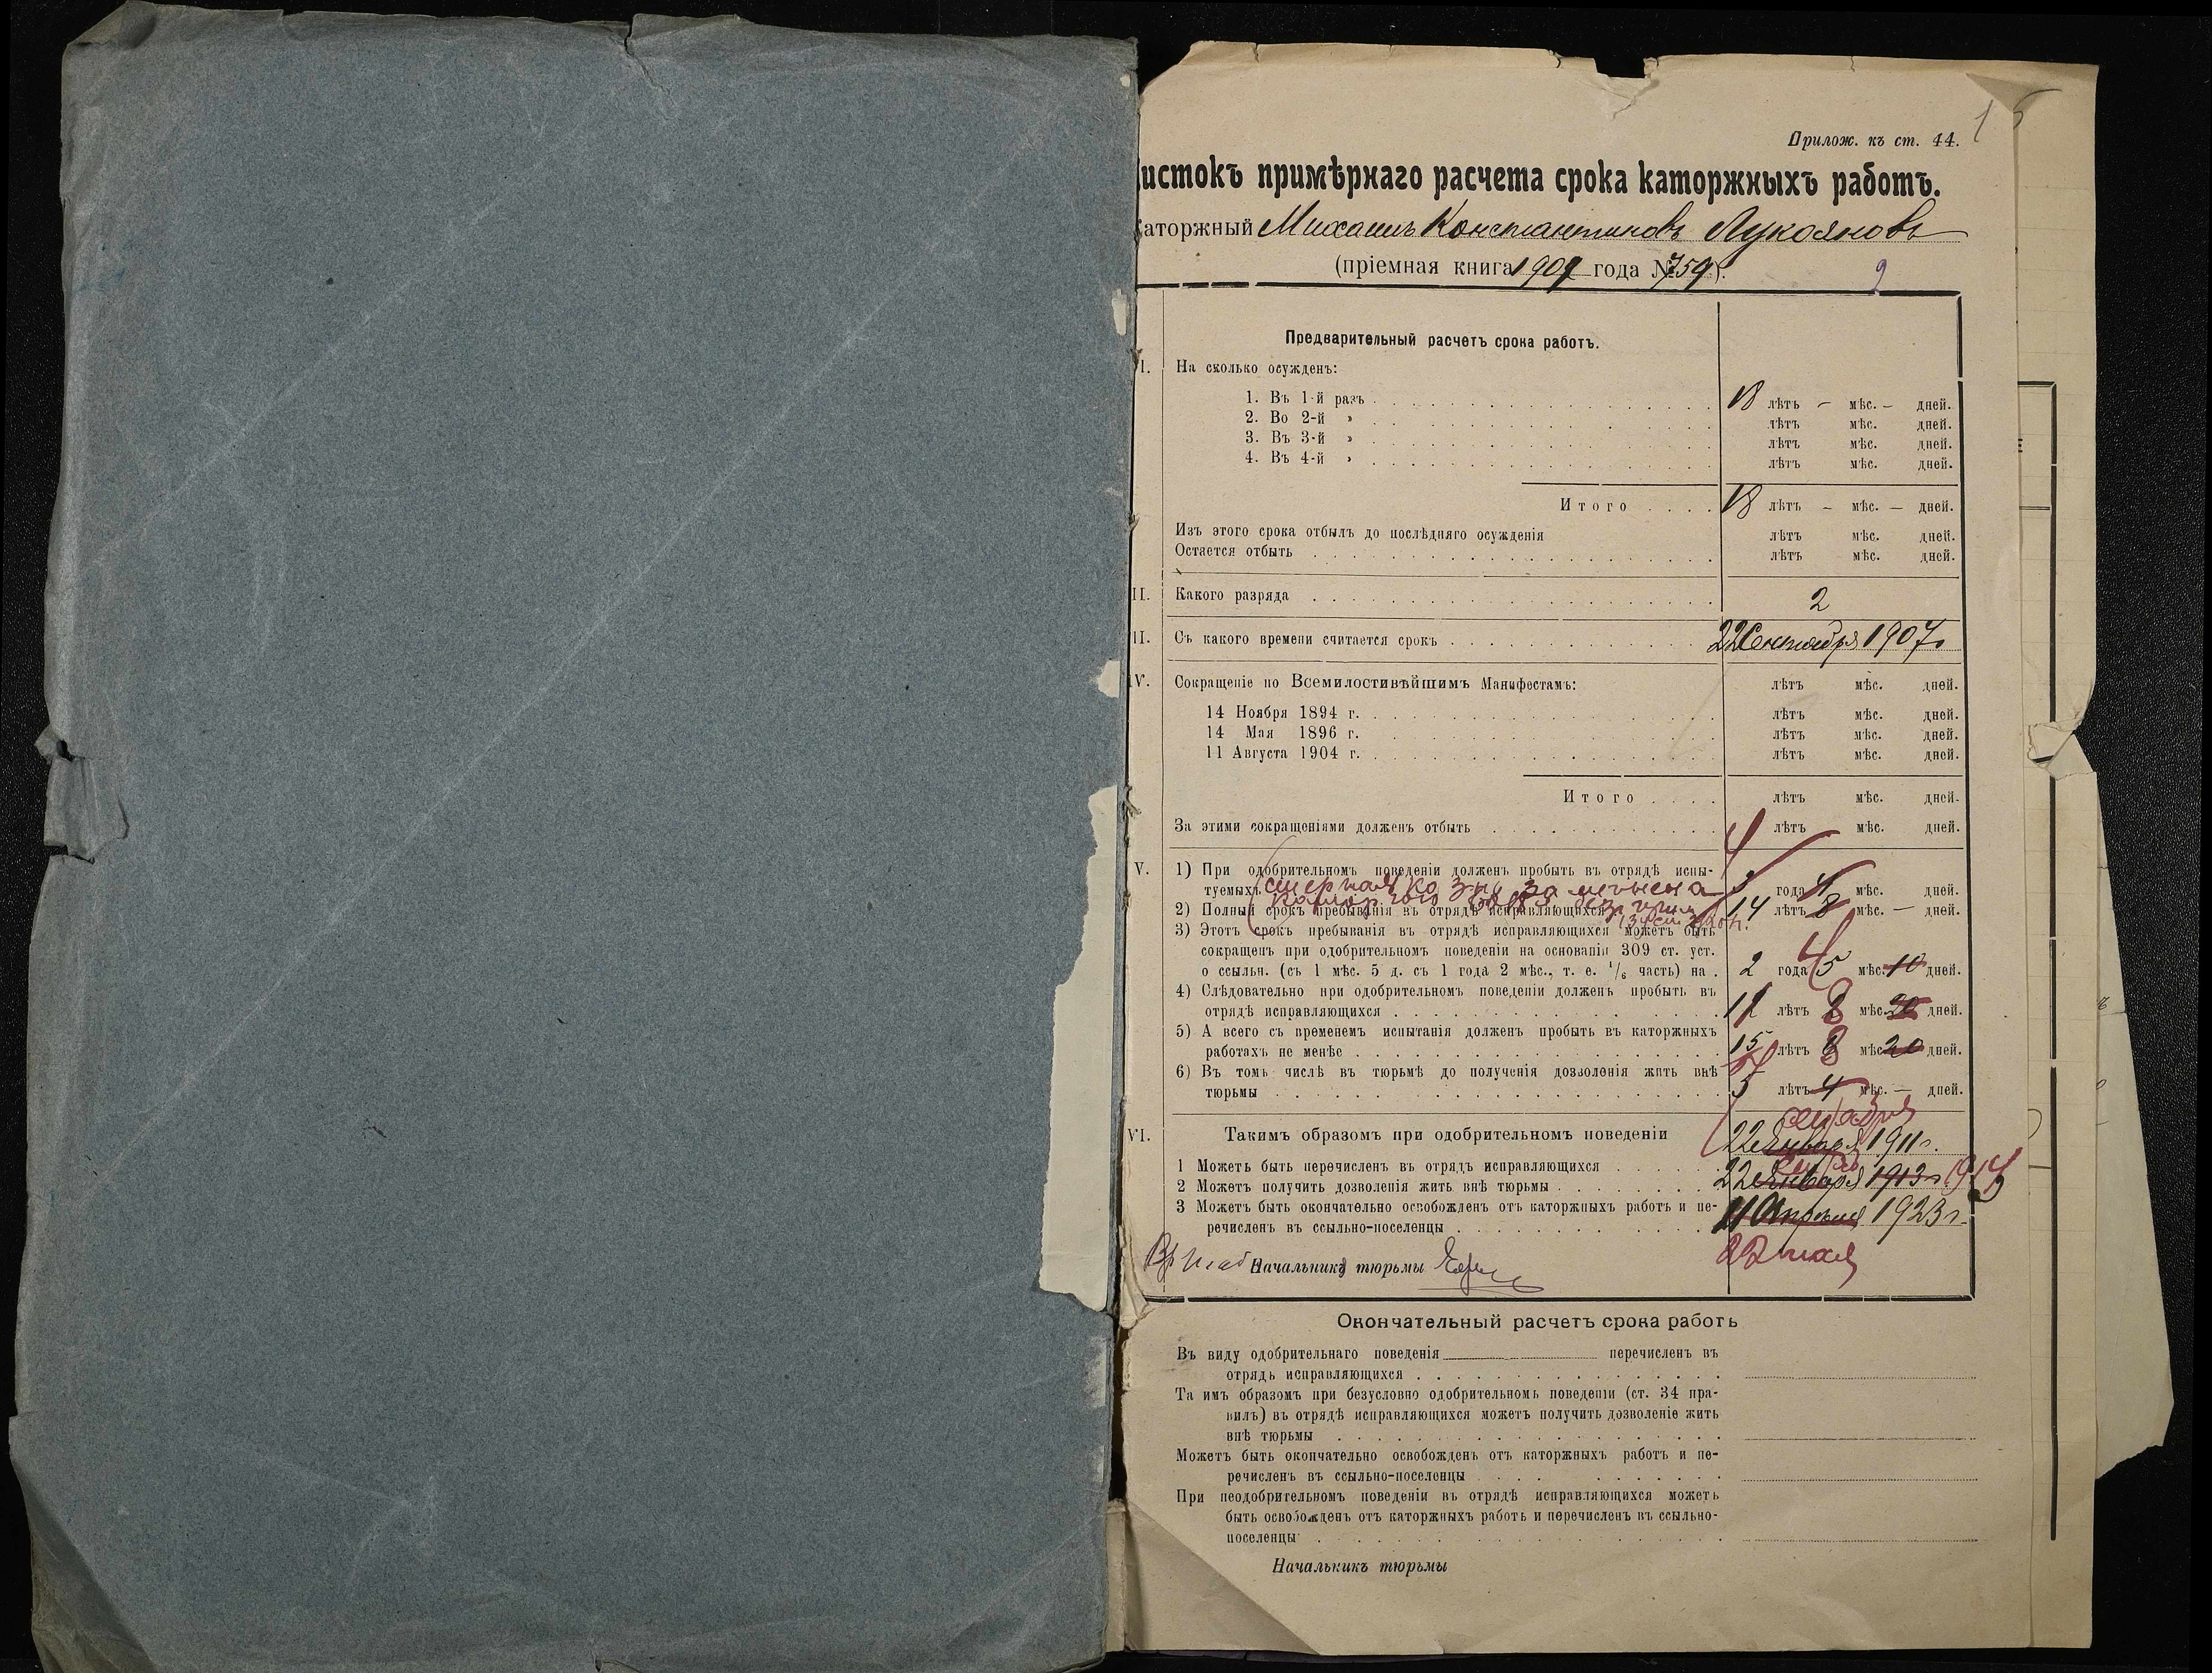 1
Прилож. къ ст. 44.
истокъ примѣрнаго расчета срока каторжныхъ работъ.
аторжный Михаилъ Константиновъ Лукояновъ
(пріемная книга 1909 года № 759).
9
Предварительный расчетъ срока работъ.
I. На сколько осужденъ:
1. Въ 1-й разъ 18 лѣтъ – мѣс. – дней.
2. Во 2-й » лѣтъ мѣс. дней.
3. Въ 3-й » лѣтъ мѣс. дней.
4. Въ 4-й » лѣтъ мѣс. дней.
Итого 18 лѣтъ – мѣс. – дней.
Изъ этого срока отбылъ до послѣдняго осужденія лѣтъ мѣс. дней.
Остается отбыть лѣтъ мѣс. дней.
II. Какого разряда 2
II. Съ какого времени считается срокъ 22 Сентября 1907 г.
IV. Сокращеніе по Всемилостивѣйшимъ Манифестамъ: лѣтъ мѣс. дней.
14 Ноября 1894 г. лѣтъ мѣс. дней.
14 Мая 1896 г. лѣтъ мѣс. дней.
11 Августа 1904 г. лѣтъ мѣс. дней.
Итого лѣтъ мѣс. дней.
За этими сокращеніями долженъ отбыть лѣтъ мѣс. дней.
V. 1) При одобрительномъ поведеніи долженъ пробыть въ отрядѣ испы-
4
туемыхъ 3 года 4 мѣс. дней.
смертная казнь замѣнена
каторгою
2) Полный срокъ пребыванія въ отрядѣ исправляющихся 14 лѣтъ 8 мѣс. — дней.
3) Этотъ срокъ пребыванія въ отрядѣ исправляющихся можетъ быть
сокращенъ при одобрительномъ поведеніи на основаніи 309 ст. уст.
4
о ссыльн. (съ 1 мѣс. 5 д. съ 1 года 2 мѣс., т. е. 1/6 часть) на 2 года 5 мѣс. 10 дней.
4) Слѣдовательно при одобрительномъ поведеніи долженъ пробыть въ
отрядѣ исправляющихся лѣтъ 8 мѣс. 20 дней.
5) А всего съ временемъ испытанія долженъ пробыть въ каторжныхъ
работахъ не менѣе 15 лѣтъ 8 мѣс. 20 дней.
6) Въ томъ числѣ въ тюрьмѣ до полученія дозволенія жить внѣ
тюрьмы 5 лѣтъ 4 мѣс. — дней.
сентября
VI. Такимъ образомъ при одобрительномъ поведеніи
1 Можетъ быть перечисленъ въ отрядъ исправляющихся 22 Января 1911 г.
2 Можетъ получить дозволенія жить внѣ тюрьмы 22 Января 1913 г. 1914
3 Можетъ быть окончательно освобожденъ отъ каторжныхъ работъ и пе-
речисленъ въ ссыльно-поселенцы 11 Апрѣля 1923 г.
22 мая
Начальникъ тюрьмы
Окончательный расчетъ срока работъ
Въ виду одобрительнаго поведенія перечисленъ въ
отрядъ исправляющихся
Та имъ образомъ при безусловно одобрительномъ поведеніи (ст. 34 пра-
вилъ) въ отрядѣ исправляющихся можетъ получить дозволеніе жить
внѣ тюрьмы
Можетъ быть окончательно освобожденъ отъ каторжныхъ работъ и пе-
речисленъ въ ссыльно-поселенцы
При неодобрительномъ поведеніи въ отрядѣ исправляющихся можетъ
быть освобожденъ отъ каторжныхъ работъ и перечисленъ въ ссыльно-
поселенцы
Начальникъ тюрьмы